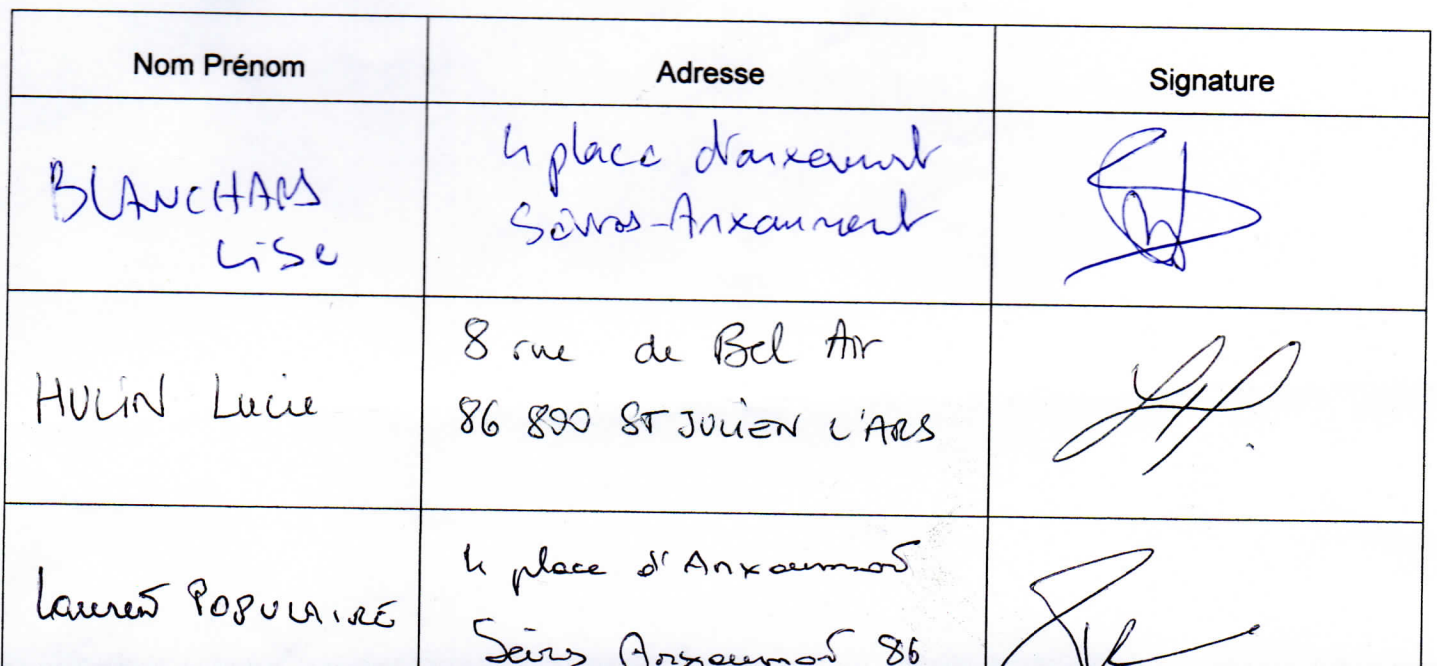 Nom Prénom
Adresse
Signature
BLANCHARD
Lise
4 place d'anxaumont
Sèvres-Anxaumont
HULIN Lucie
8 rue de Bel Air
86 800 ST JULIEN L'ARS
Laurent POPULAIRE
4 place d'Anxaumont
Sèvres Anxaumont 86